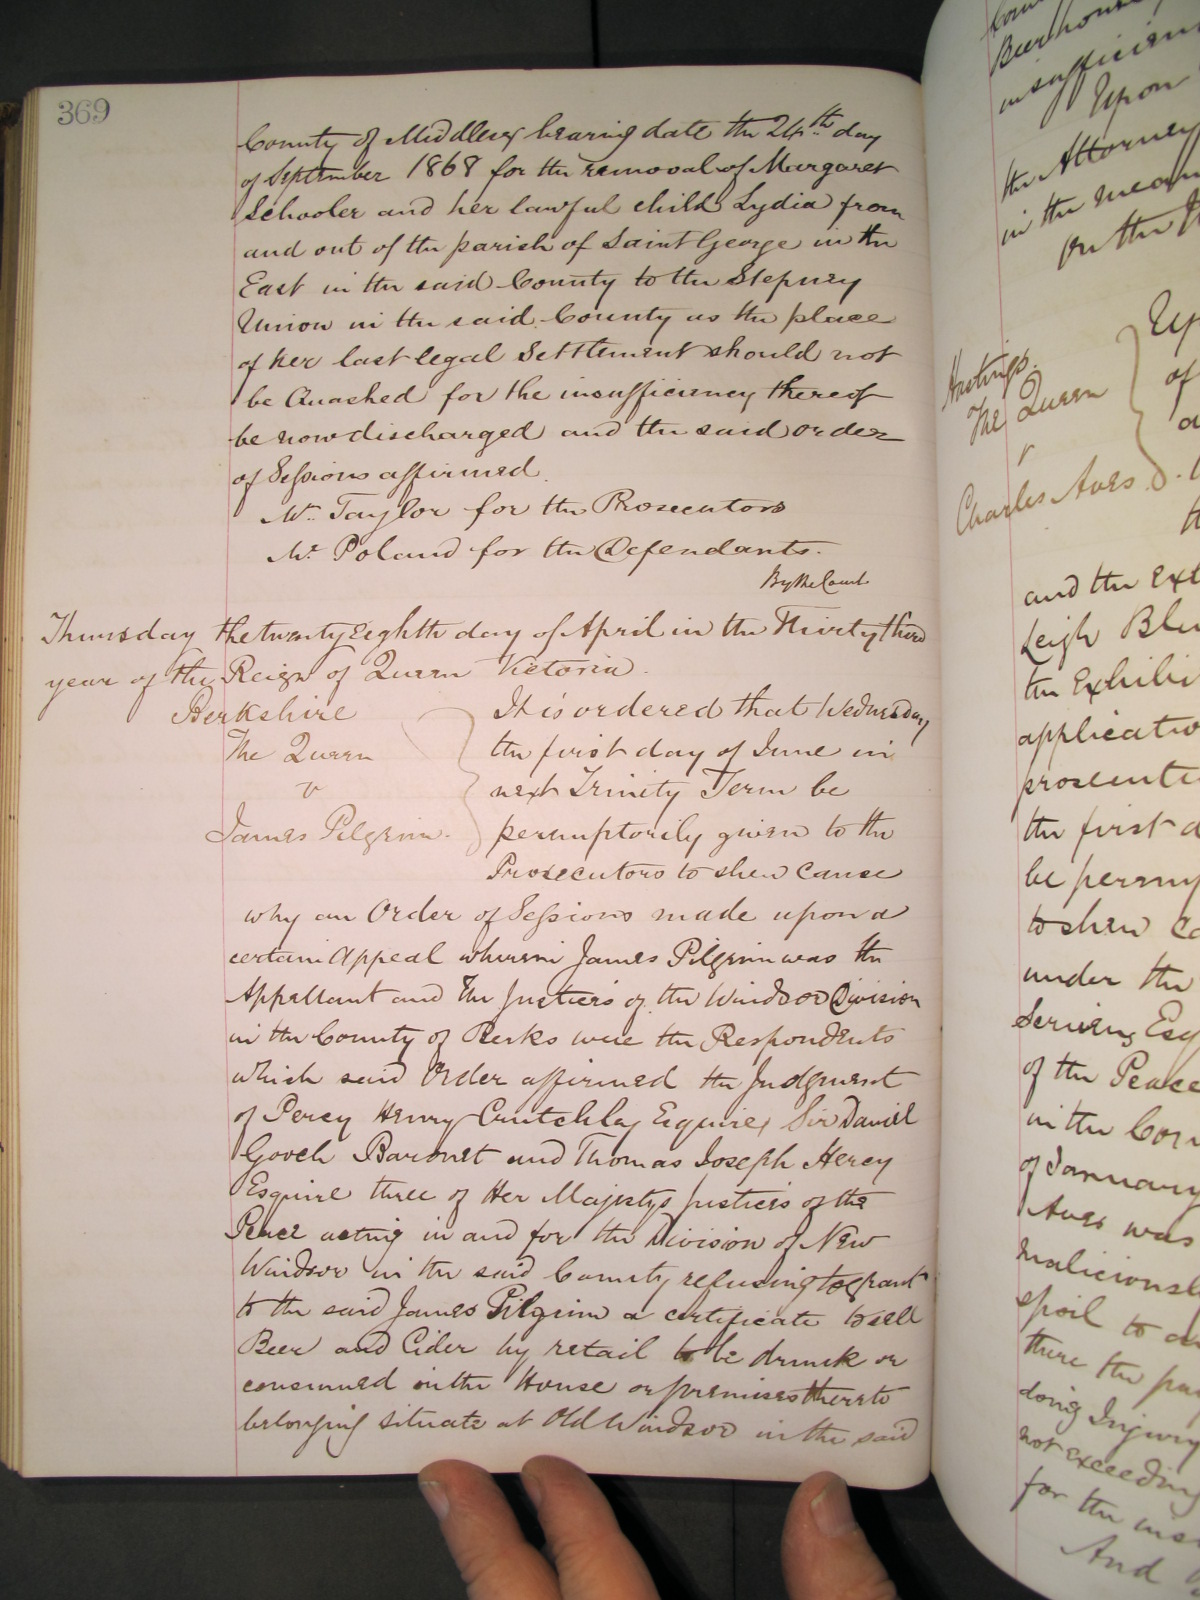 369
County of Middlesex bearing date the 24th day
of September 1868 for the removal of Margaret
Schooler and her lawful child Lydia from
and out of the parish of Saint George in the
East in the said County to the Stepney
Union in the said County as the place
of her last legal Settlement should not
be Quashed for the insufficiency thereof
be now discharged and the said order
of Sessions affirmed.
Mr. Taylor for the Prosecutors
Mr. Poland for the Defendants.
By the Court
Thursday the twenty Eighth day of April in the Thirty third
year of the Reign of Queen Victoria.
Berkshire
The Queen
v
James Pilgrim.
It is ordered that Wednesday
the first day of June in
next Trinity Term be
peremptorily given to the
Prosecutors to shew cause
why an Order of Sessions made upon a
certain Appeal wherein James Pilgrim was the
Appellant and The Justices of the Windsor Division
in the County of Berks were the Respondents
which said Order affirmed the Judgment
of Percy Henry Crutchley Esquire, Sir Daniel
Gooch Baronet and Thomas Joseph Hercy
Esquire three of Her Majestys Justices of the
Peace acting in and for the Division of New
Windsor in the said County refusing to grant
to the said James Pilgrim a certificate to sell
Beer and Cider by retail to be drunk or
consumed in the House or premises thereto
belonging situate at Old Windsor in the said
Beerhouse
insufficien
Upon
the Attorney
in the mean
On the
Hastings.
The Queen
v
Charles Aves
Up
of
a
and the Ext
Leigh Blu
the Exhibi
applicatio
prosecute
the first d
be perem
to shew ca
under the
Scriven Esq
of the Peace
in the Cou
of January
Aves was
maliciousl
spoil to a
there the pa
doing Injury
not exceeding
for the ins
And